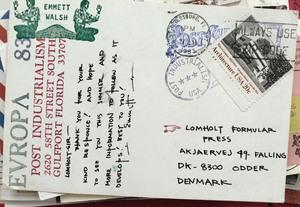 EMMETT
WALSH
EVROPA 83
POST INDUSTRIALISM
2620 58TH STREET SOUTH
GULFPORT FLORIDA 33707
LOMHOLT-SIR—
THANK YOU FOR YOUR
KIND RESPONSE! AND HOPE
TO SEE YOU THIS WINTER AND
MORE INFORMATION TO FOLLOW AS IT
DEVELOPS! BEST TO YOU!
PM
ALWAYS USE
POST INDUSTRIALISM
USA
Architecture USA 20c
LOMHOLT FORMULAR
PRESS
AKJÆRVEJ 49. FALLING
DK-8300 ODDER
DENMARK